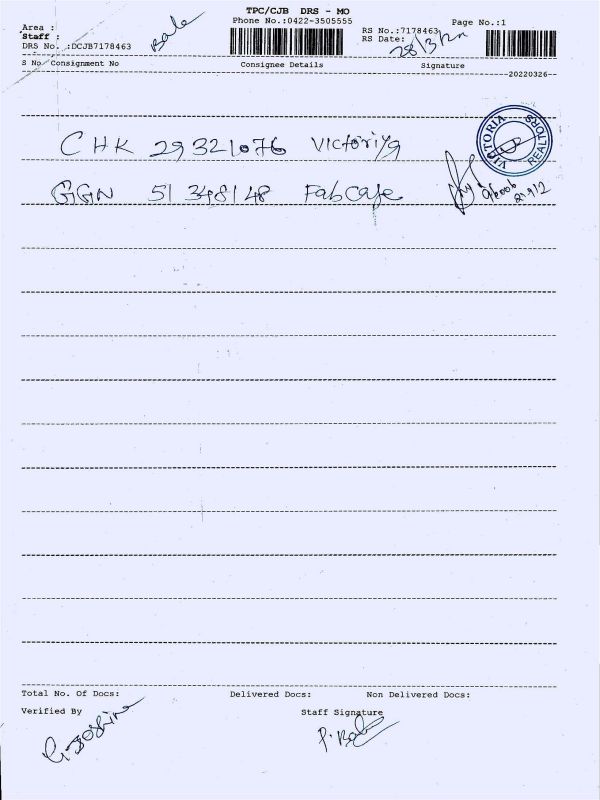 TPC/CJB DRS - MO
Area :
Phone No.:0422-3505555
Page No.:1
Staff :
Bala
RS No.:7178463
DRS No. :DCJB7178463
RS Date:
28/3/22
S No/Consignment No Consignee Details Signature
20220326
CHK 29321076 Victoriya
VICTORIA REALTORS
GGN 51348148 FabCafe
Total No. Of Docs: Delivered Docs: Non Delivered Docs:
Verified By Staff Signature
P. Bala